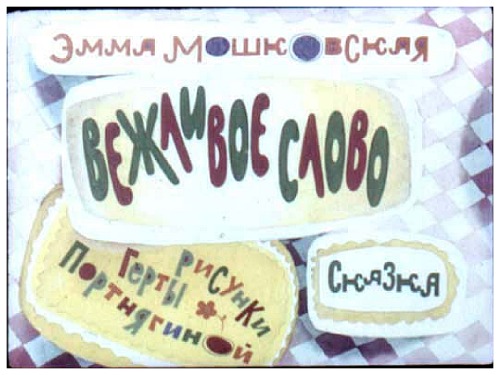 Эмма Мошковская
Вежливое слово
рисунки
Герты
Портнягиной
Сказка